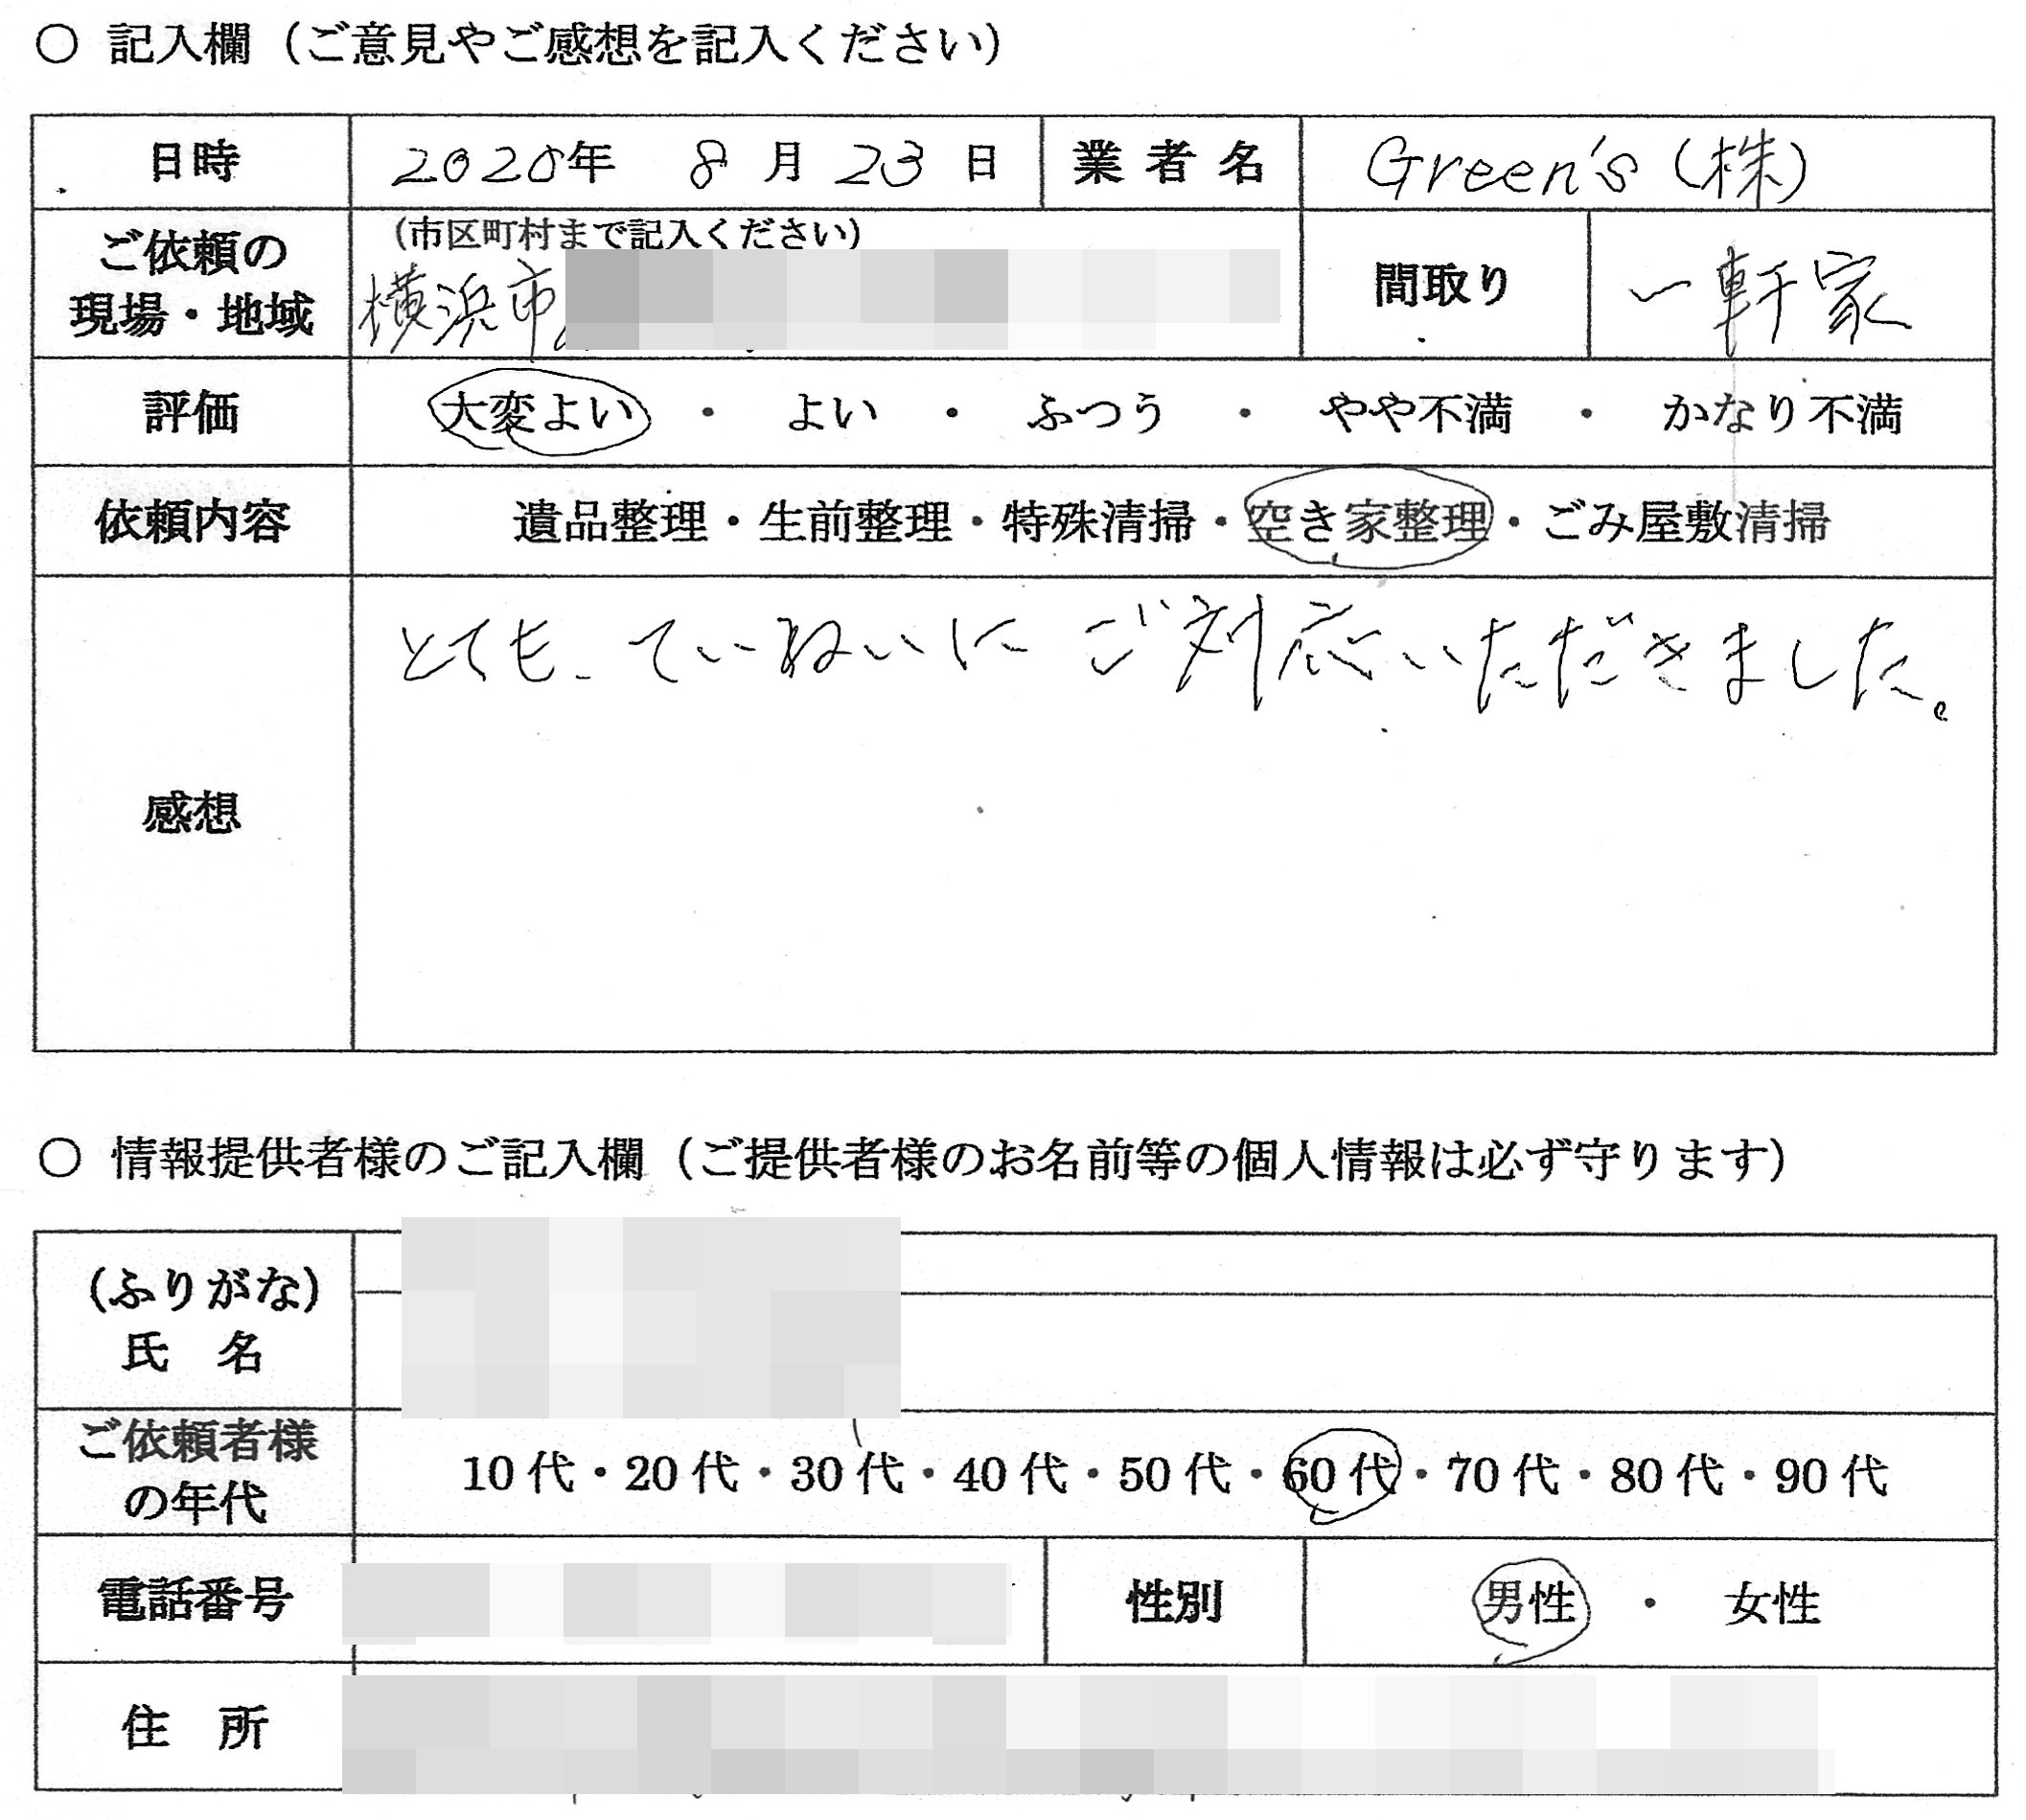 ○ 記入欄（ご意見やご感想を記入ください）
日時 2020年 8月 23日 業者名 Green's（株）
ご依頼の現場・地域 （市区町村まで記入ください）
横浜市 間取り 一軒家
評価 大変よい ・ よい ・ ふつう ・ やや不満 ・ かなり不満
依頼内容 遺品整理・生前整理・特殊清掃・空き家整理・ごみ屋敷清掃
感想 とても、ていねいに ご対応いただきました。
○ 情報提供者様のご記入欄（ご提供者様のお名前等の個人情報は必ず守ります）
（ふりがな）
氏 名
ご依頼者様の年代 10代・20代・30代・40代・50代・60代・70代・80代・90代
電話番号 性別 男性 ・ 女性
住 所